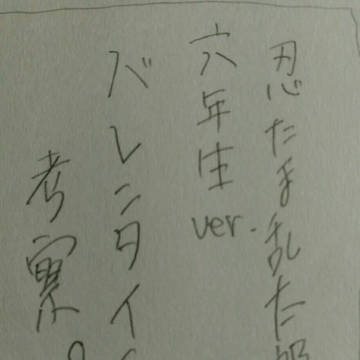 忍たま乱太郎
六年生ver.
バレンタイ
考察